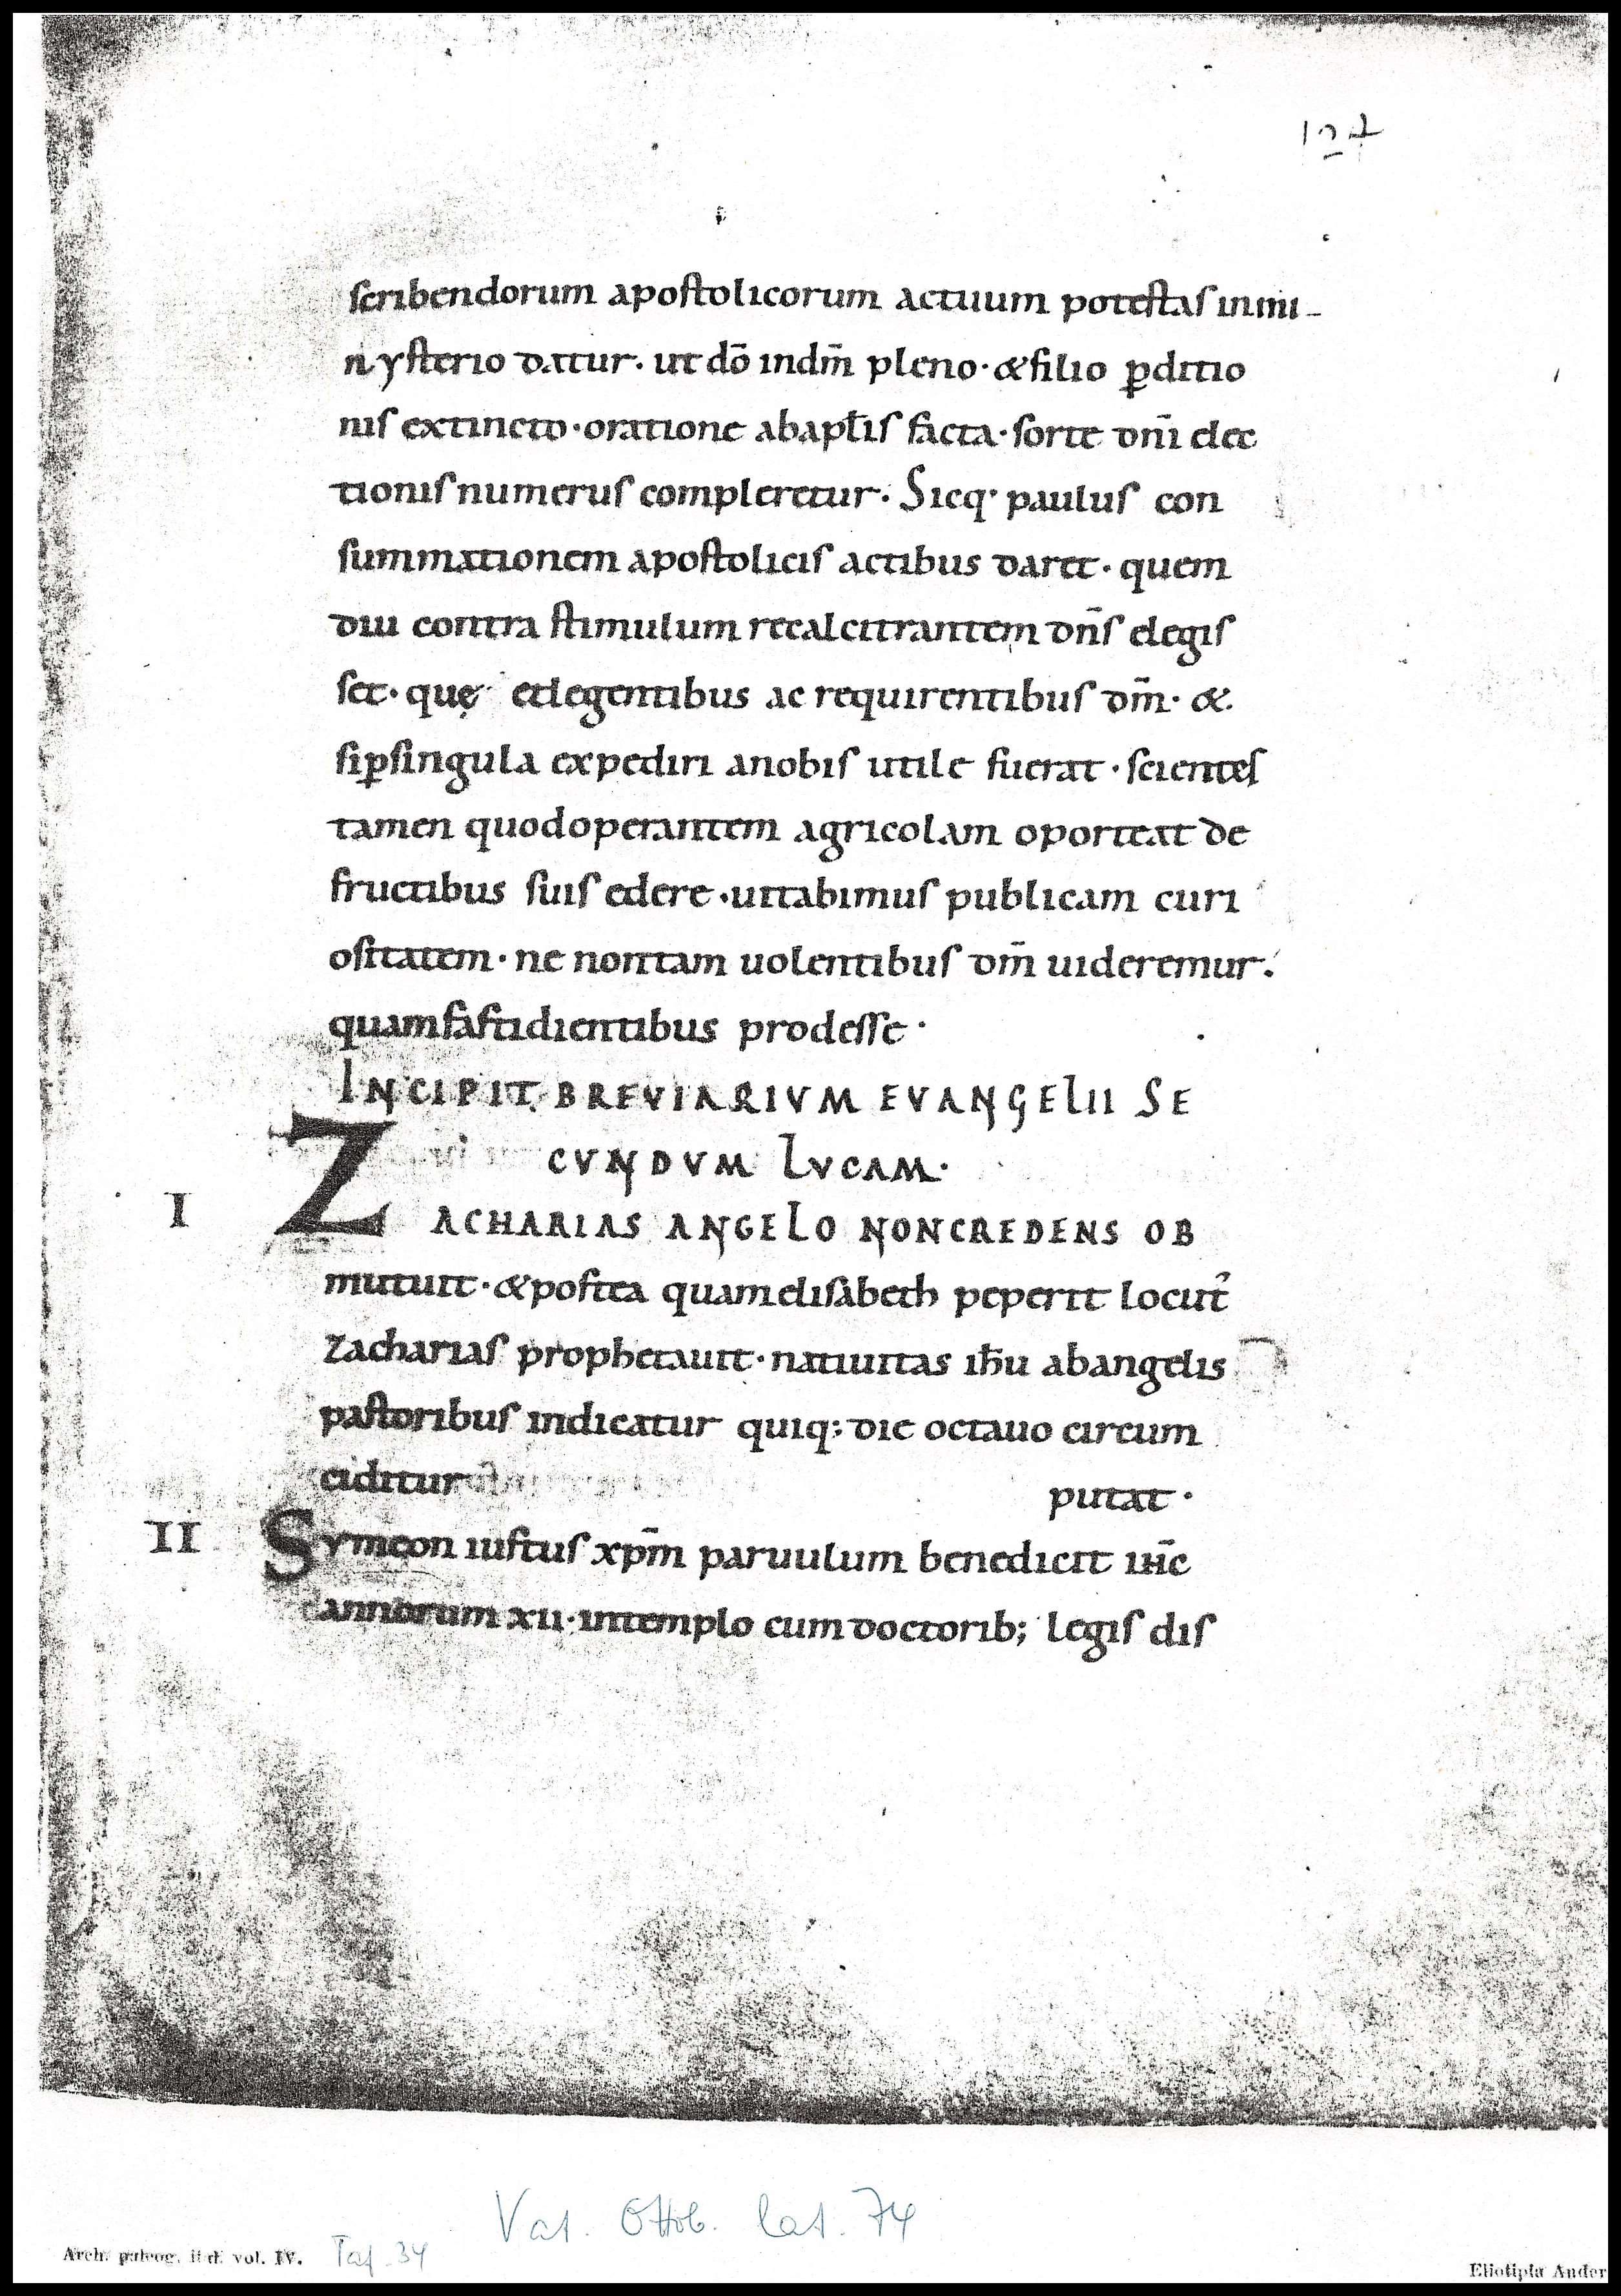 127
scribendorum apostolicorum actuum potestas inmi-
nysterio datur. ut dō indm̄ pleno. &filio p̱ditio
nis extincto. oratione abapƚis facta. sorte dnī elec
tionis numerus compleretur. Sicq· paulus con
summationem apostolicis actibus daret. quem
diu contra stimulum recalcitrantem dn̄s elegis
set. quę etlegentibus ac requirentibus dm̄. &.
sip̱singula expediri anobis utile fuerat. scientes
tamen quodoperantem agricolam oporteat de
fructibus suis edere. uitabimus publicam curi
ositatem. ne nontam uolentibus dm̄ uideremur.
quamfastidientibus prodesse.
INCIPIT BREVIARIVM EVANGELII SE
CVNDVM LVCAM.
I ZACHARIAS ANGELO NONCREDENS OB
mutuit. &postea quamelisabeth peperit locut᾿
zacharias prophetauit. natiuitas ih̄u abangelis
pastoribus indicatur quiq; die octauo circum
ciditur
putat.
II Symeon iustus xpm̄ paruulum benedicit ih̄c
annorum xii. intemplo cum doctorib; legis dis
Vat. Ottob. lat. 74
Arch. paleog. ital. vol. IV. Taf. 34
Eliotipia Ander